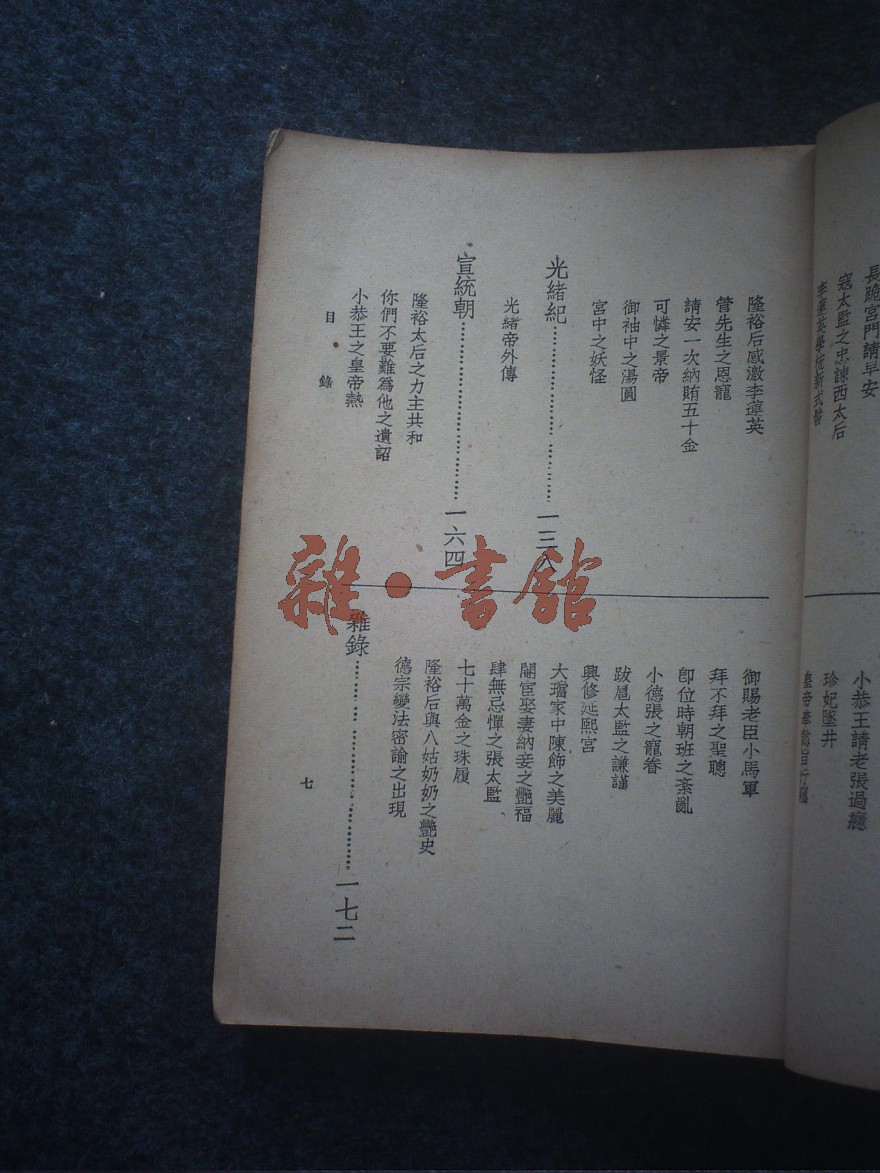 長跪宮門請早安
寇太監之忠諫西太后
小恭王請老張過癮
珍妃墜井
隆裕后感激李蓮英
管先生之恩寵
請安一次納賄五十金
可憐之景帝
御袖中之湯圓
宮中之妖怪
光緒紀 一三八
光緒帝外傳
宣統朝 一六四
隆裕太后之力主共和
你們不要難爲他之遺詔
小恭王之皇帝熱
御賜老臣小馬軍
拜不拜之聖聰
卽位時朝班之紊亂
小德張之寵眷
跋扈太監之謙謹
興修延熙宮
大璫家中陳飾之美麗
閹宦娶妻納妾之艷福
肆無忌憚之張太監
七十萬金之珠履
隆裕后與八姑奶奶之艷史
德宗變法密諭之出現
雜錄 一七二
目錄
七
雜·書館